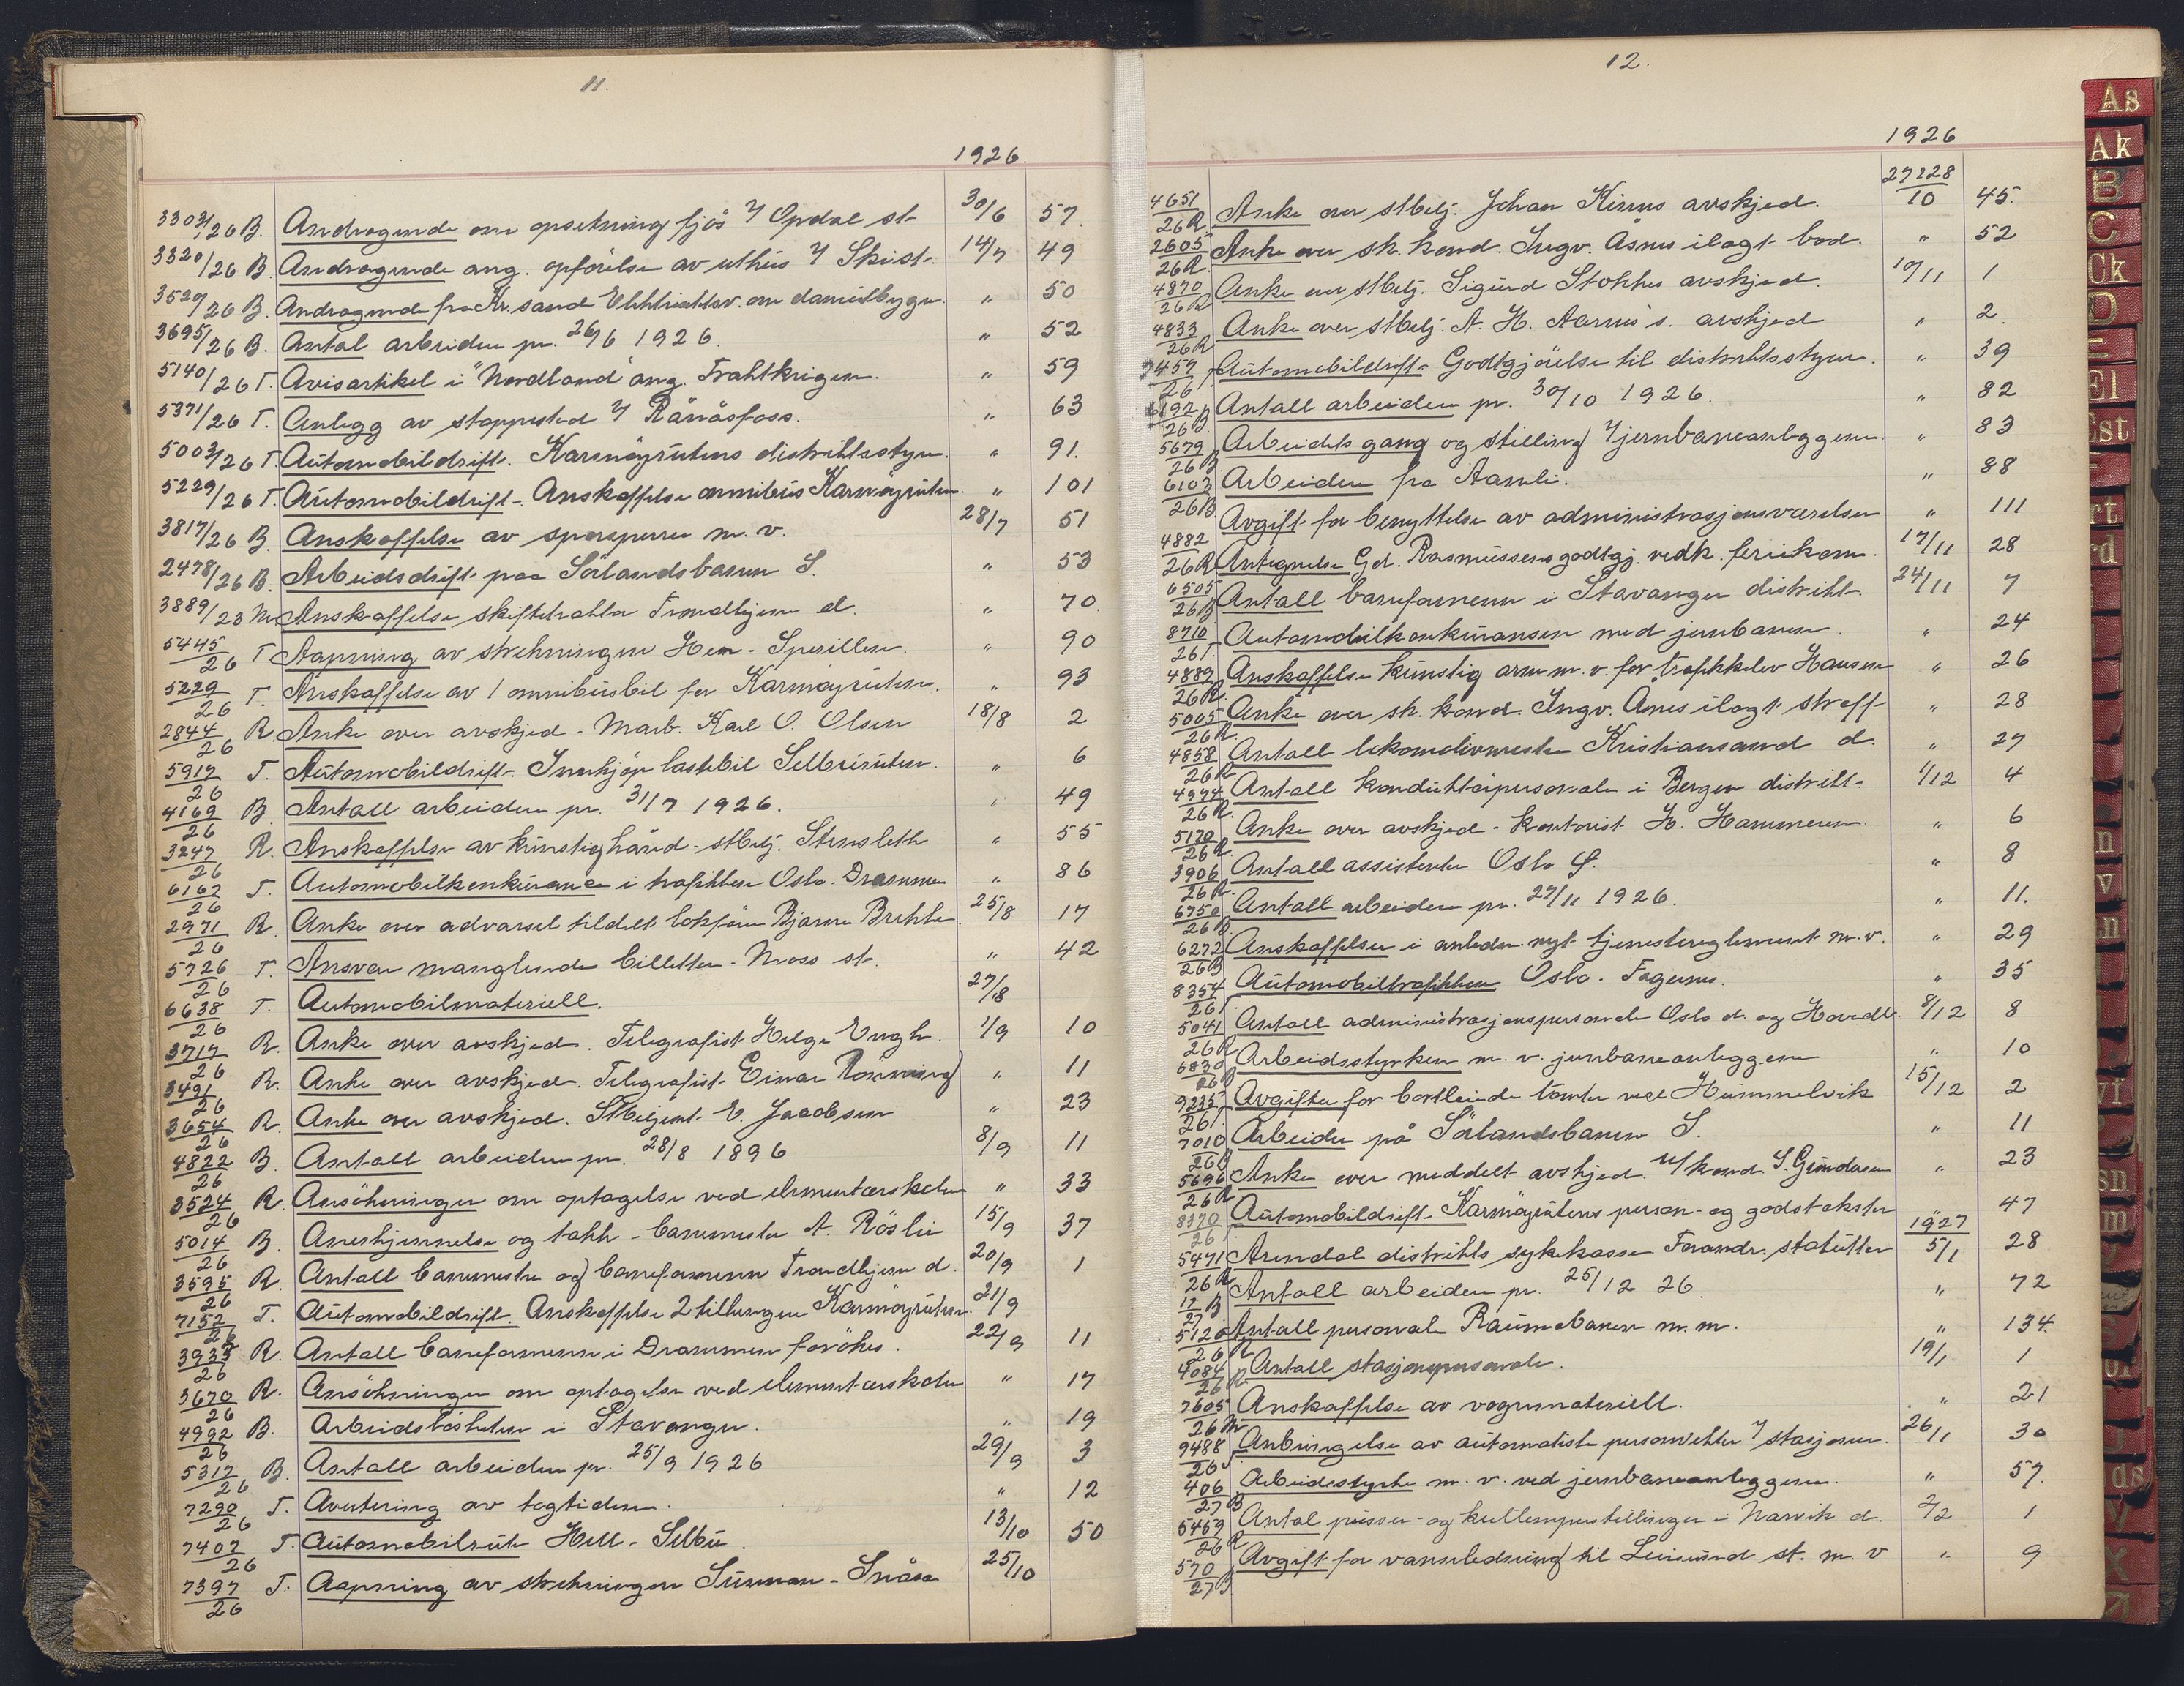 11.
1926.
3303/26 B. Andragende om opsetning fjös v/ Opdal st 30/6 57.
3320/26 B. Andragende ang. opförelse av uthus v/ Ski st. 14/7 49
3529/26 B. Andragende fra Kr.sand Elektricitetsv. om damutbygn. " 50
3695/26 B. Antal arbeidere pr. 26/6 1926. " 52
5140/26 T. Avisartikel i "Nordland" ang. Fraktkrigen. " 59
5371/26 T. Anlegg av stoppested v/ Rånåsfoss. " 63
5003/26 T. Automobildrift. Karmöyrutens distriktsstyre. " 91.
5229/26 T. Automobildrift. Anskaffelse omnibus Karmöyruten. " 101
3817/26 B. Anskaffelse av sporsperrer m. v. 28/7 51
2478/26 B. Arbeidsdrift paa Sörlandsbanen S. " 53
3889/23 M Anskaffelse skiftetraktor Trondhjem d. " 70.
5445/26 T Aapning av strekningen Hen - Sperillen. " 90
5229/26 T. Anskaffelse av 1 omnibusbil for Karmöyruten. " 93
2844/26 R. Anke over avskjed - Marb. Karl O. Olsen 18/8 2
5917/26 T. Automobildrift. Innkjöp lastebil Selburuten. " 6
4169/26 B. Antall arbeidere pr. 31/7 1926. " 49
3247/26 R. Anskaffelse av kunstig hånd - stbetj. Stensleth " 55
6162/26 T. Automobilkonkurance i trafikken Oslo - Drammen " 86
2971/26 R. Anke over advarsel tildelt lokför Bjarne Brekke 25/8 17
5726/26 T. Ansvar manglende billetter - Moss st. " 42
6638/26 T. Automobilmateriell. 27/8
3717/26 R. Anke over avskjed. Telegrafist Helge Engh. 1/9 10
3491/26 R. Anke over avskjed. Telegrafist Einar Rönning " 11
3654/26 R. Anke over avskjed. Stbetjent E. Jacobsen " 23
4822/26 B. Antall arbeidere pr. 28/8 1896 8/9 11
3524/26 R. Ansökninger om optagelse ved elementærskolen " 33
5014/26 B. Aneskjennelse og takk - banemester A. Röslie 15/9 37
3595/26 R. Antall banemestre og baneformenn Trondhjem d. 20/9 1
7152/26 T. Automobildrift. Anskaffelse 2 tilhengere Karmöyruten. 21/9
3933/26 R. Antall baneformenn i Drammen forökes. 22/9 11
3670/26 R. Ansökninger om optagelse ved elementærskolen " 17
4992/26 B. Arbeidslösheten i Stavanger. " 19
5317/26 B. Antall arbeidere pr. 25/9 1926 29/9 3
7290/26 T. Avertering av togtidene. " 12
7407/26 T. Automobilrute Hell - Selbu. 13/10 50
7397/26 T. Aapning av strekningen Sunnan - Snåsa 25/10
12.
1926
4651/26 R Anke over stbetj. Johan Kinns avskjed. 27228/10 45.
2605/26 R. Anke over sk. kond. Ingv. Åsnes ilagt bod. " 52
4870/26 R Anke over stbetj. Sigurd Stokkes avskjed. 10/11 1
4833/26 R Anke over stbetj. A. H. Aarnes's. avskjed " 2.
7457/26 T Automobildrift - Godtgjörelse til distriktsstyrer. " 39
6192/26 B. Antall arbeidere pr. 30/10 1926. " 82
5679/26 B. Arbeidets gang og stilling v/ jernbaneanleggene. " 83
6103/26 B Arbeidere fra Aamli. " 88
Avgift for benyttelse av administrasjonsværelser " 111
4882/26 R Antegnelse Gd. Rasmussens godtgj. vedk. feriekom. 17/11 28
6505/26 B Antall baneformenn i Stavanger distrikt. 24/11 7
8710/26 T. Automobilkonkuransen med jernbanen. " 24
4889/26 R. Anskaffelse kunstig arm m. v. for trafikkelev Hansen " 26
5005/26 R. Anke over sk. kond. Ingv. Åsnes ilagt straff " 28
4858/26 R Antall lokomotivmestre Kristiansand d. " 27
4974/26 R. Antall konduktörpersonale i Bergen distrikt. 1/12 4
5170/26 R. Anke over avskjed - kontorist H. Hammeren " 6
3906/26 R. Antall assistenter Oslo Ö. " 8
6750/26 B. Antall arbeidere pr. 27/11 1926. " 11.
6272/26 B Anskaffelser i anledn. nyt tjenestereglement m. v. " 29
8354/26 T Automobiltrafikken Oslo - Fagernes. " 35
5041/26 R Antall administrasjonspersonale Oslo d. og Hovedk. 8/12 8
6830/26 B Arbeidsstyrken m. v. jernbaneanleggene " 10
9235/26 T. Avgifter for bortleiede tomter ved Hummelvik 15/12 2
7010/26 B Arbeider på Sörlandsbanen S. " 11
5696/26 R Anke over meddelt avskjed. u/kond. S. Gundersen " 23
8370/26 T Automobildrift - Karmöyrutens person- og godstakster " 47
1927
5471/26 R Arendal distrikts sykekasse Forandr. statutter 5/1 28
17/27 B Antall arbeidere pr. 25/12 26. " 72
5120/26 R Antall personale Raumabanen m. m. " 134.
4084/26 R Antall stasjonspersonale. 19/1 1
7605/26 M Anskaffelse av vognmateriell. " 21
9488/26 T Anbringelse av automatiske personvekter v/ stasjoner. 26/1 30
406/27 B Arbeidsstyrke m. v. ved jernbaneanleggene. " 57.
5459/26 R Antal pusser- og kullemperstillinger i Narvik d. 2/2 1
570/27 B Avgift for vannledning til Leirsund st. m. v " 9
As
Ak
B
C
Ck
D
El
Est